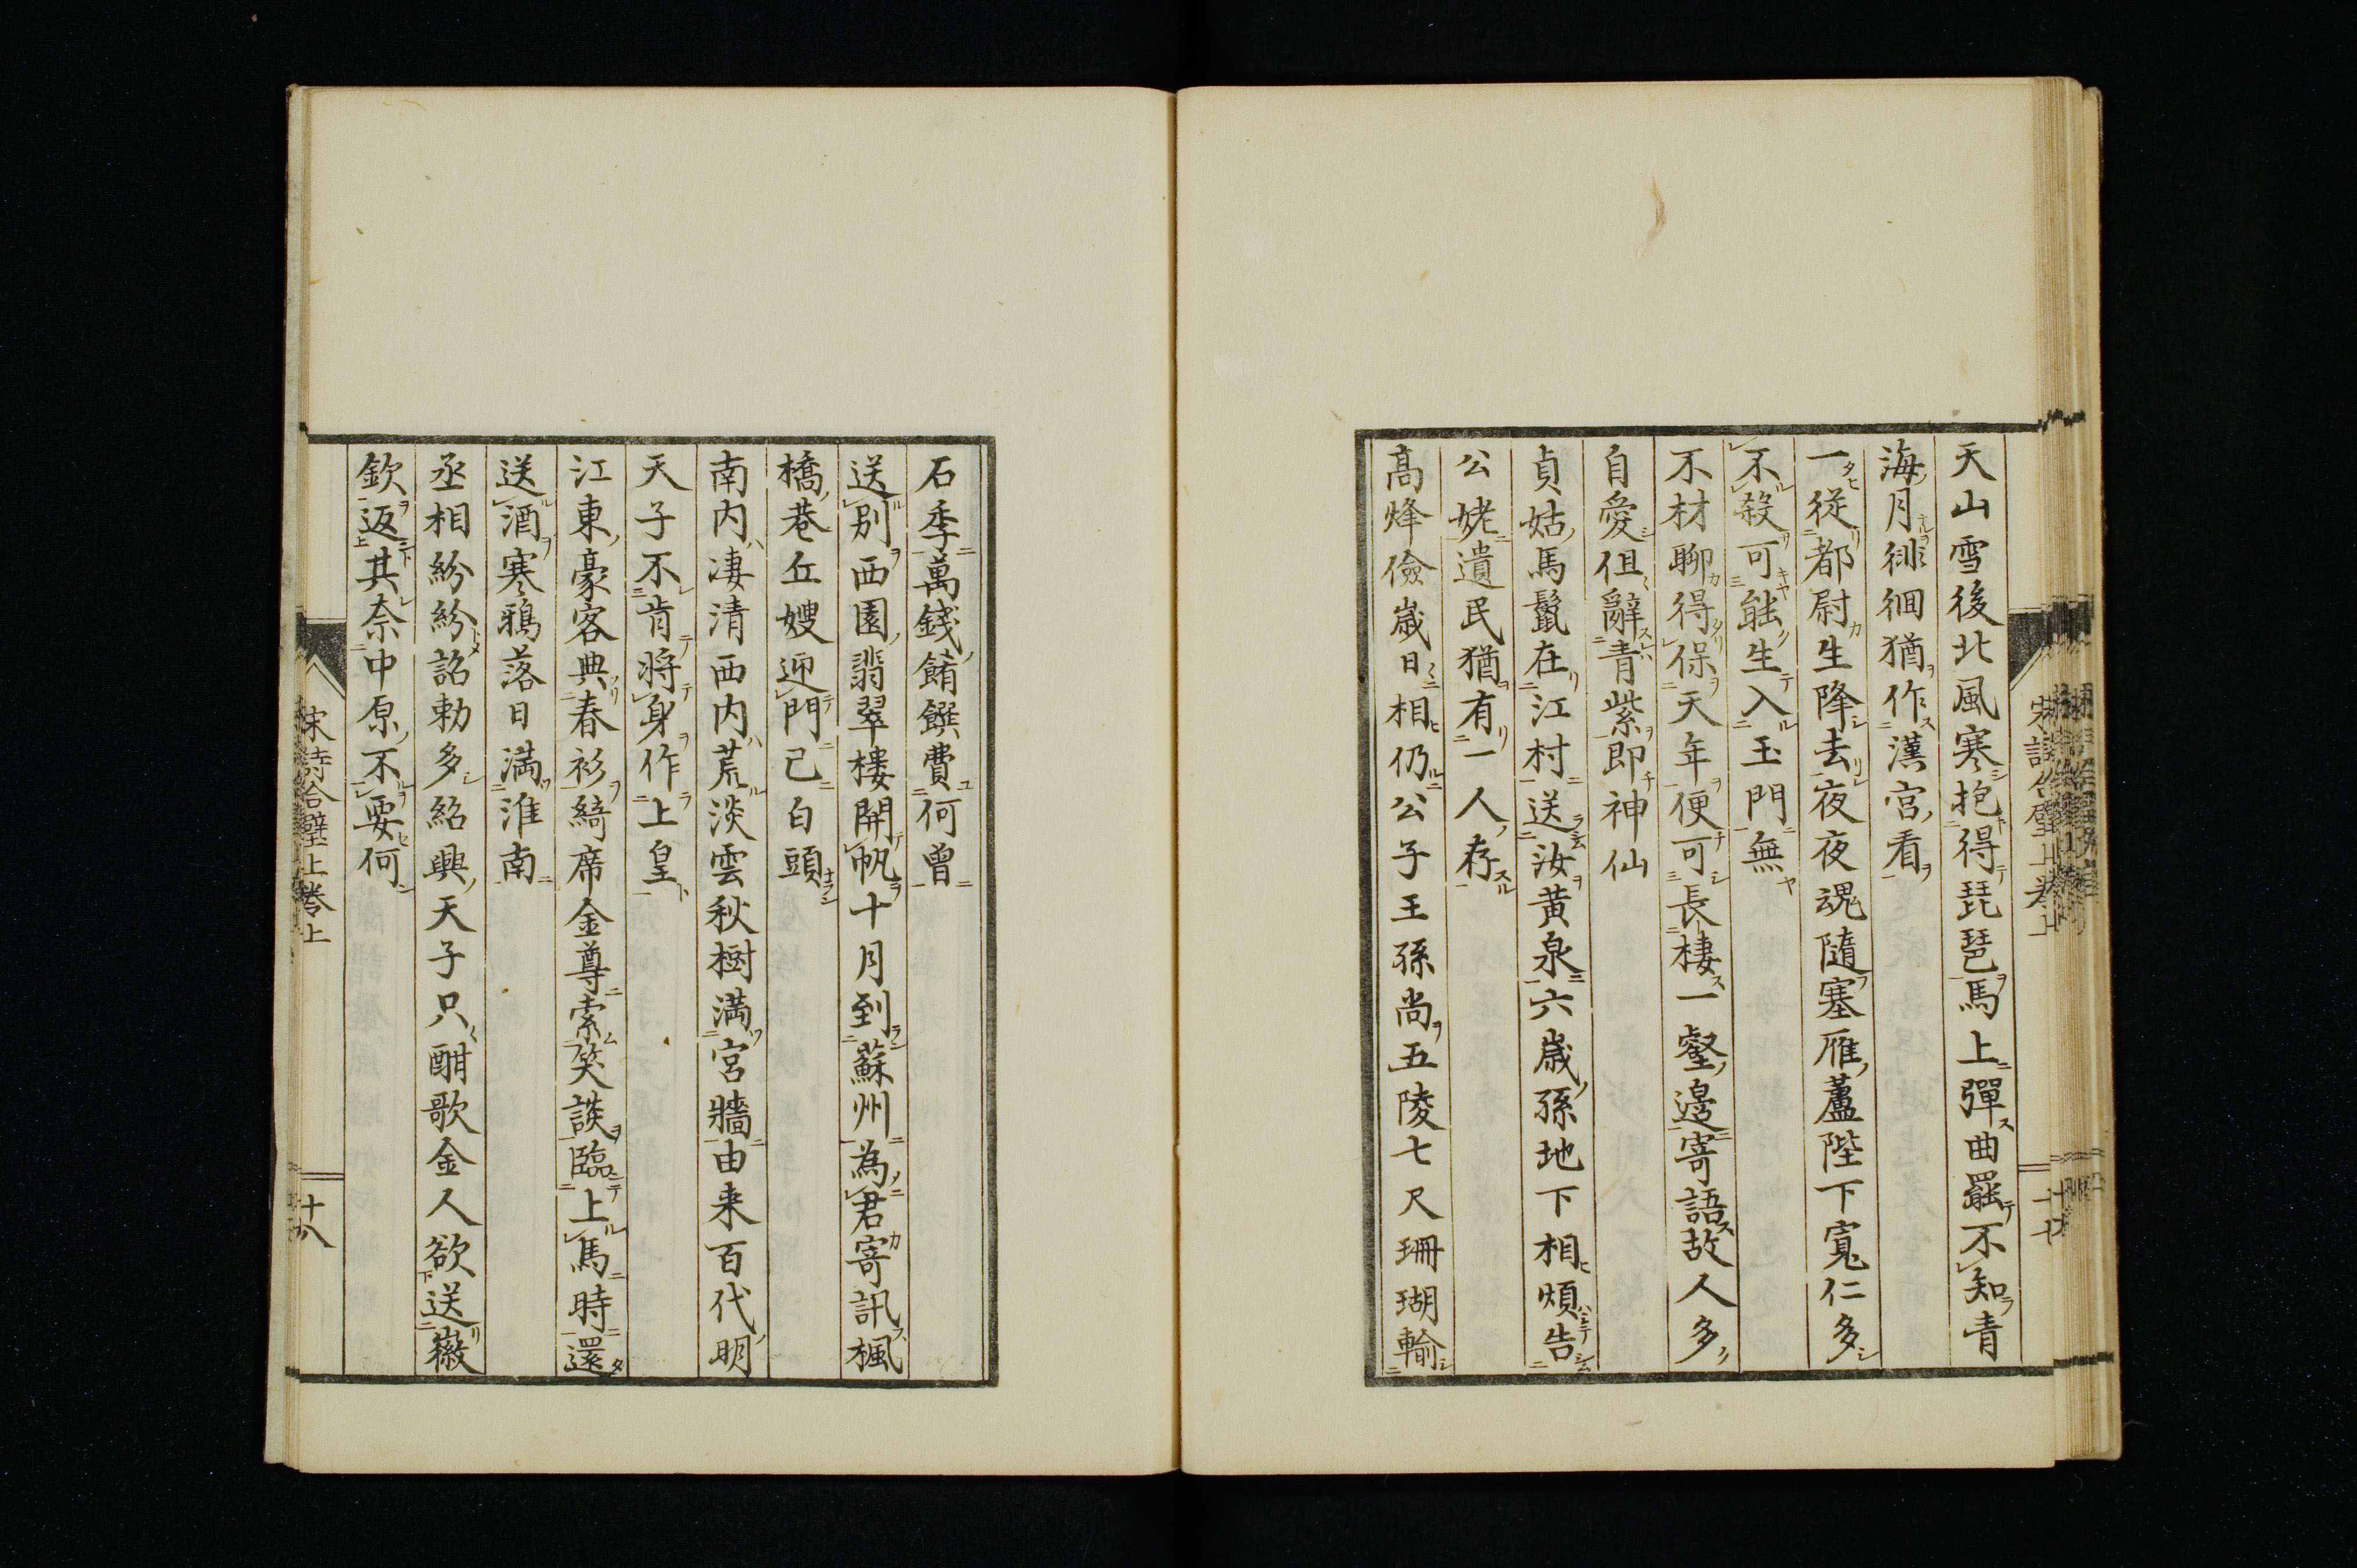 天山雪後北風寒抱得琵琶馬上彈曲罷不知青
海月徘徊猶作漢宮看
一從都尉生降去夜夜魂隨塞雁蘆陛下寬仁多
不殺可能生入玉門無
不材聊得保天年便可長棲一壑邊寄語故人多
自愛但辭青紫即神仙
貞姑馬鬣在江村送汝黃泉六歲孫地下相煩告
公姥遺民猶有一人存
高烽儉歲日相仍公子王孫尚五陵七尺珊瑚輸
石季萬錢餚饌費何曾
送別西園翡翠樓開帆十月到蘇州為君寄訊楓
橋巷丘嫂迎門已白頭
南內凄清西內荒淡雲秋樹満宮牆由来百代明
天子不肯將身作上皇
江東豪客典春衫綺席金尊索笑談臨上馬時還
送酒寒鴉落日満淮南
丞相紛紛詔勅多紹興天子只酣歌金人欲送徽
欽返其奈中原不要何
宋詩合璧上巻上
十八